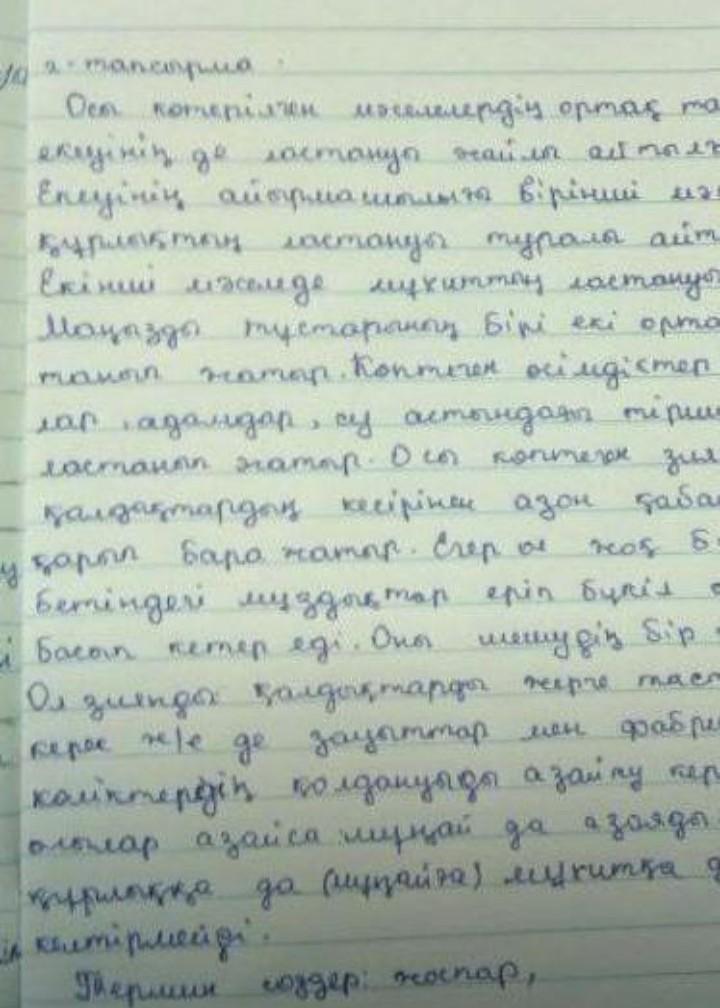 2-тапсырма
Осы көтерілген мәселелердің ортақ та
екеуінің де ластануы жайлы айтылғ
Екеуінің айырмашылығы бірінші мә
құрлықтың ластануы туралы айт
Екінші мәселеде мұхиттың ластануы
Маңызды тұстарының бірі екі орта
танып жатыр. Көптеген өсімдіктер
лар, адамдар, су астындағы тірш
ластанып жатыр. Осы көптеген зия
қалдақтардың кесірінен азон қаба
қарып бара жатыр. Егер ол жоқ б
бетіндегі мұздықтар еріп бүкіл
басып кетер еді. Оны шешудің бір
Ол зиянды қалдықтарды жерге таст
керек ж/е де зауыттар мен фабри
көліктердің қолдануыды азайту кер
олылар азайса мұңай да азаяды
құрлыққа да (мұңайға) мұхитқа д
келтірмейді.
Термин сөздер: жоспар,